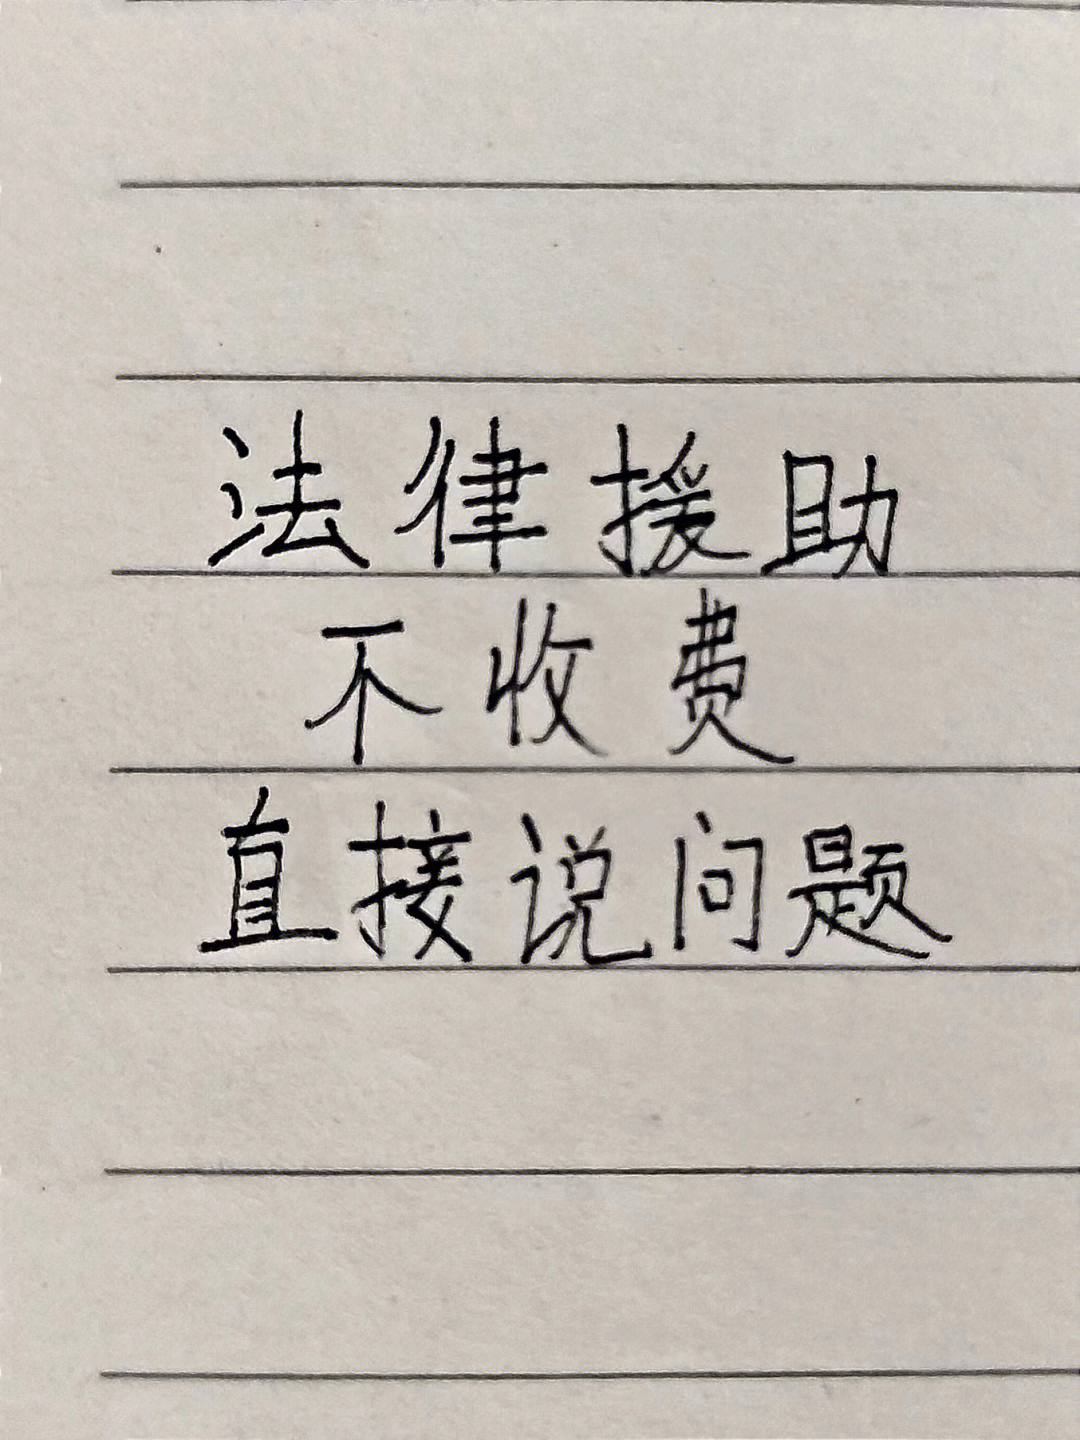 法律援助
不收费
直接说问题